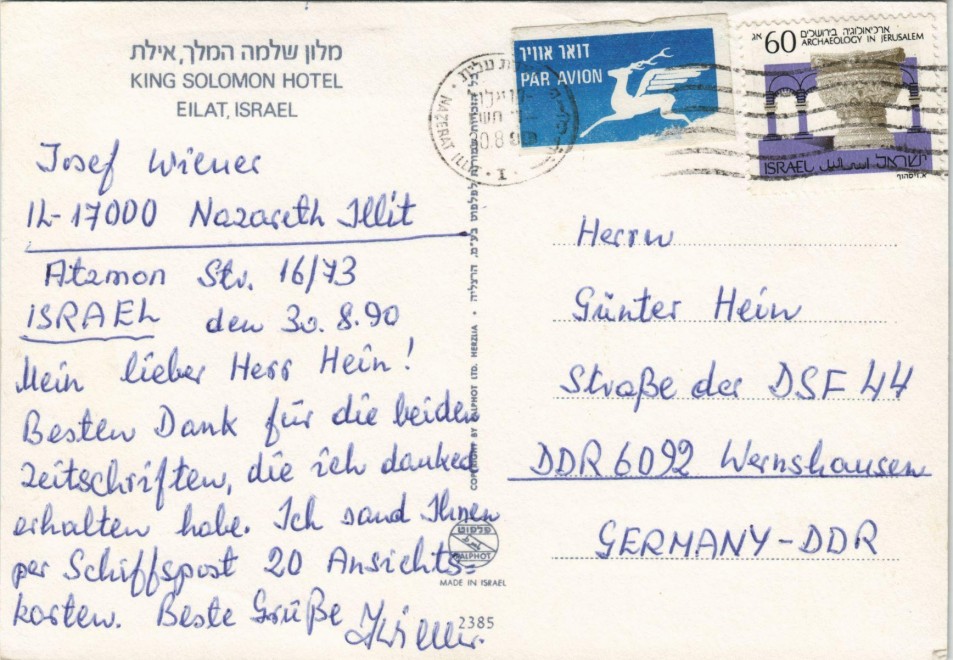 מלון שלמה המלך, אילת
KING SOLOMON HOTEL
EILAT, ISRAEL
Josef Wiener
IL-17000 Nazareth Illit
Atzmon Str. 16/73
ISRAEL den 30.8.90
Mein lieber Herr Hein!
Besten Dank für die beiden
Zeitschriften, die ich dankend
erhalten habe. Ich sand Ihnen
per Schiffspost 20 Ansichts=
karten. Beste Grüße
JWiener
דואר אוויר
PAR AVION
60 אג
ארכיאולוגיה בירושלים
ARCHAEOLOGY IN JERUSALEM
ISRAEL اسرائيل ישראל
NAZERAT ILL
COPYRIGHT BY PALPHOT LTD. HERZLIA • פלפוט בע"מ, הרצליה
פלפוט
PALPHOT
MADE IN ISRAEL
2385
Herrn
Günter Hein
Straße der DSF 44
DDR 6092 Wernshausen
GERMANY-DDR